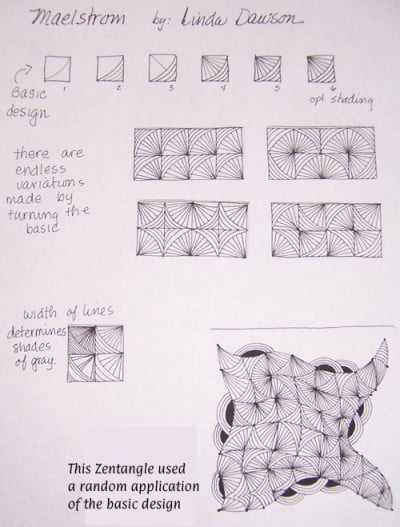 Maelstrom by: Linda Dawson
1 2 3 4 5 6
Basic
design
opt. shading
there are
endless
variations
made by
turning the
basic
width of lines
determines
shades
of gray.
This Zentangle used
a random application
of the basic design